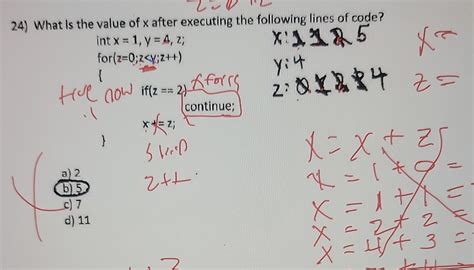 24) What is the value of x after executing the following lines of code?
int x = 1, y = 4, z;
for(z=0;z<y;z++)
{
if(z == 2)
continue;
x += z;
}
a) 2
b) 5
c) 7
d) 11
x: 1 1 2 5
y: 4
z: 0 1 2 3 4
x =
z =
true now
x = x + z
x = 1 + 0 =
x = 1 + 1 =
x = 2 + 2 =
x = 4 + 3 =
z++